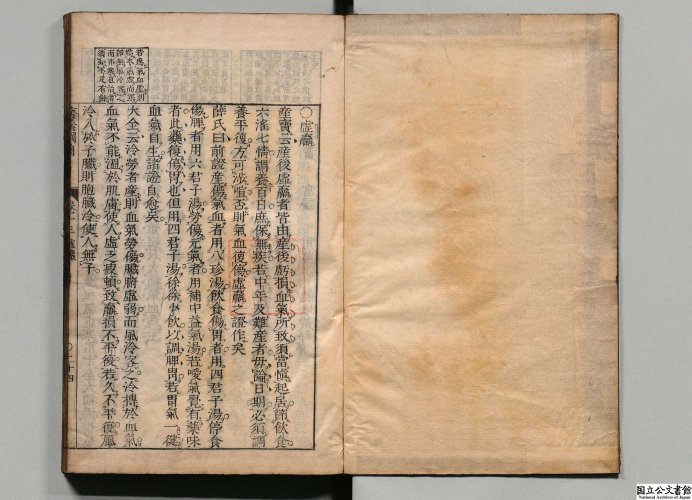 ○虛羸
産寶云産後虛羸者皆由産後虧損血氣所致須當愼起居節飲食
六淫七情調養百日庶保無疾若中年及難産者毋論日期必須調
養平復方可涉喧否則氣血復傷虛羸之證作矣
薛氏曰前證産傷氣血者用八珍湯飲食傷胃者用四君子湯停食
傷脾者用六君子湯勞傷元氣者用補中益氣湯若噯氣覺有藥味
者此藥復傷胃也但用四君子湯徐徐少飲以調脾胃若胃氣一健
血氣自生諸證自愈矣
大全云冷勞者産則血氣勞傷臟腑虛弱而風冷客之冷搏於血氣
血氣不能溫於肌膚使人虛乏疲頓致羸損不平復若久不平復風
冷入於子臟則胞臟冷使人無子
若產氣血虛則
國立公文書館
National Archives of Japan